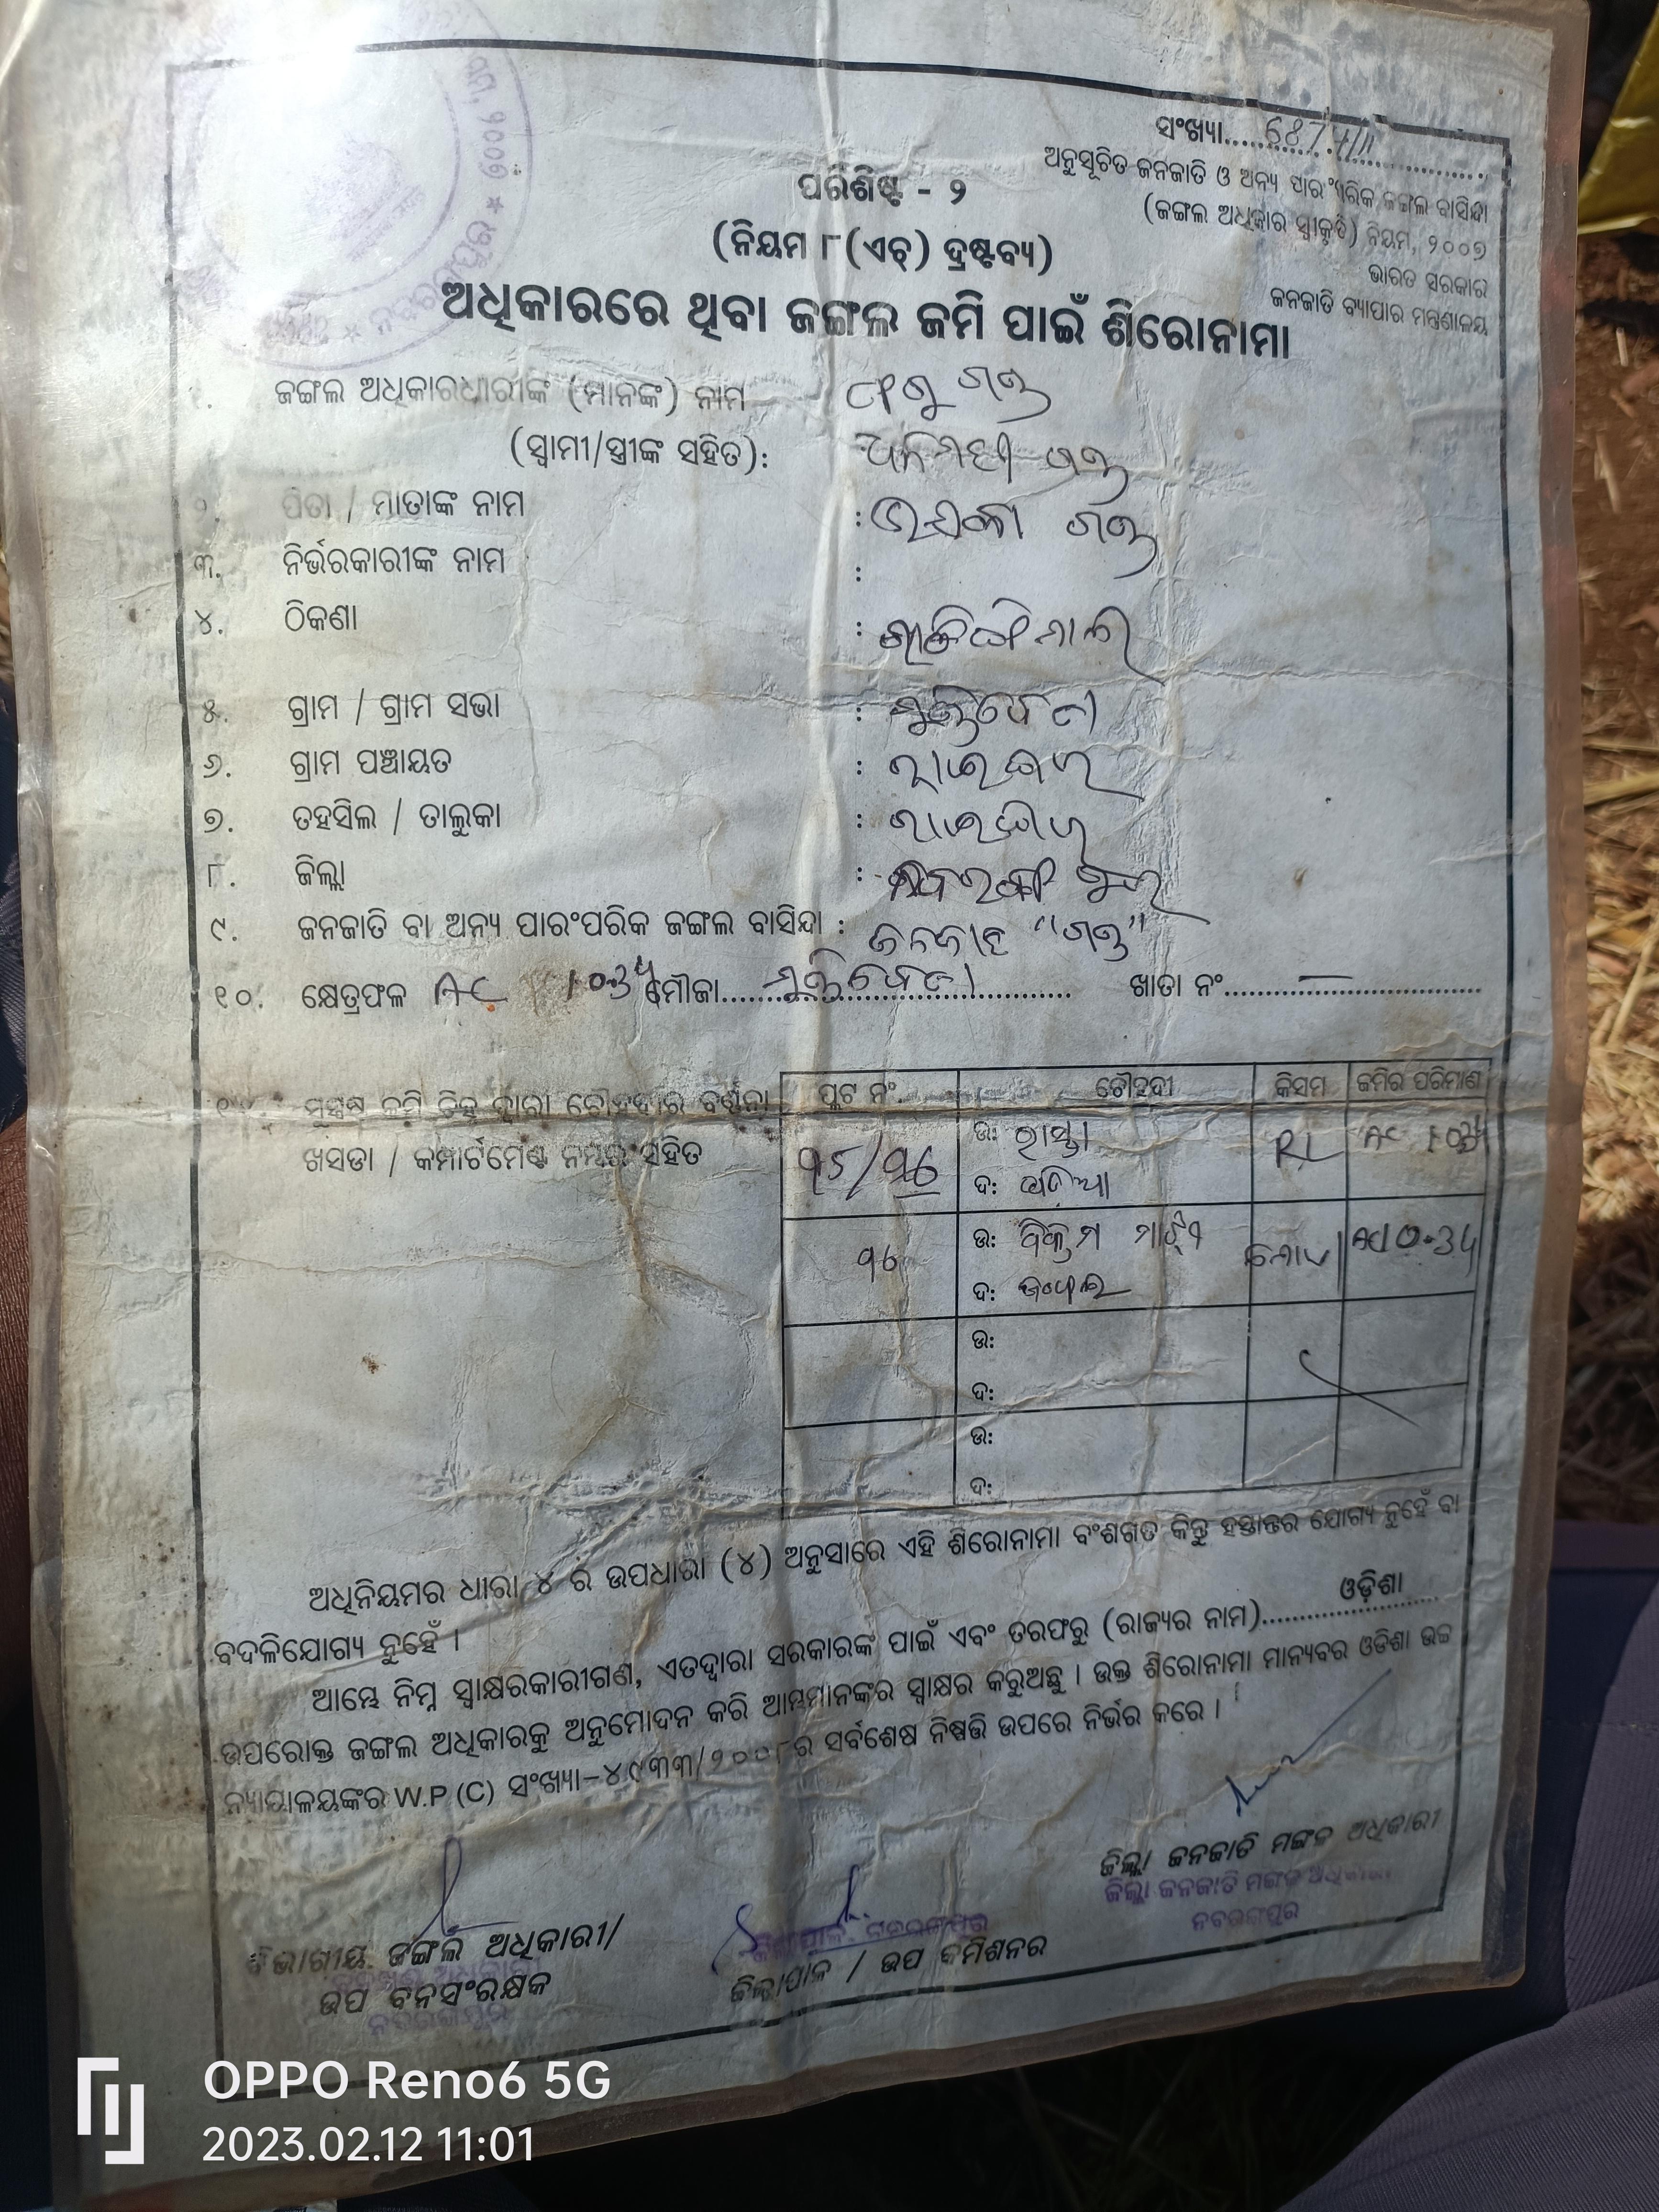 ସଂଖ୍ୟା.....687.
ଅନୁସୂଚିତ ଜନଜାତି ଓ ଅନ୍ୟ ପାରଂପରିକ ଜଙ୍ଗଲ ବାସିନ୍ଦା
(ଜଙ୍ଗଲ ଅଧିକାର ସ୍ୱୀକୃତି) ନିୟମ, ୨୦୦୭
ଭାରତ ସରକାର
ଜନଜାତି ବ୍ୟାପାର ମନ୍ତ୍ରଣାଳୟ
ପରିଶିଷ୍ଟ - ୨
(ନିୟମ ୮(ଏଚ୍) ଦ୍ରଷ୍ଟବ୍ୟ)
ଅଧିକାରରେ ଥିବା ଜଙ୍ଗଲ ଜମି ପାଇଁ ଶିରୋନାମା
ଜଙ୍ଗଲ ଅଧିକାରଧାରୀଙ୍କ (ମାନଙ୍କ) ନାମ ଗଣ୍ଡ
(ସ୍ୱାମୀ/ସ୍ତ୍ରୀଙ୍କ ସହିତ): ଗଣ୍ଡ
୨. ପିତା / ମାତାଙ୍କ ନାମ : ଗଣ୍ଡ
୩. ନିର୍ଭରକାରୀଙ୍କ ନାମ :
୪. ଠିକଣା :
୫. ଗ୍ରାମ / ଗ୍ରାମ ସଭା :
୬. ଗ୍ରାମ ପଞ୍ଚାୟତ : ରାଇଘର
୭. ତହସିଲ / ତାଲୁକା : ରାଇଘର
୮. ଜିଲ୍ଲା : ନବରଙ୍ଗପୁର
୯. ଜନଜାତି ବା ଅନ୍ୟ ପାରଂପରିକ ଜଙ୍ଗଲ ବାସିନ୍ଦା : ଜନଜାତି "ଗଣ୍ଡ"
୧୦. କ୍ଷେତ୍ରଫଳ AC ମୌଜା.......... ଖାତା ନଂ.......... —
୧୧. ମୁଖ୍ୟ ଜମି ଚିହ୍ନ ଦ୍ୱାରା ଚୌହଦୀର ବର୍ଣ୍ଣନା
ଖସଡା / କମ୍ପାର୍ଟମେଣ୍ଟ ନମ୍ବର ସହିତ
ପ୍ଲଟ ନଂ. ଚୌହଦୀ କିସମ ଜମିର ପରିମାଣ
ଉ: ରାସ୍ତା
୧୫/୧୬ RL AC
ଦ: ପଡିଆ
ଉ: ବିକ୍ରମ
୧୬
ଦ: ଜଙ୍ଗଲ
ଉ:
ଦ:
ଉ:
ଦ:
ଅଧିନିୟମର ଧାରା ୪ ର ଉପଧାରା (୪) ଅନୁସାରେ ଏହି ଶିରୋନାମା ବଂଶଗତ କିନ୍ତୁ ହସ୍ତାନ୍ତର ଯୋଗ୍ୟ ନୁହେଁ ବା
ବଦଳିଯୋଗ୍ୟ ନୁହେଁ ।
ଆମ୍ଭେ ନିମ୍ନ ସ୍ୱାକ୍ଷରକାରୀଗଣ, ଏତଦ୍ୱାରା ସରକାରଙ୍କ ପାଇଁ ଏବଂ ତରଫରୁ (ରାଜ୍ୟର ନାମ)..........ଓଡ଼ିଶା
ଉପରୋକ୍ତ ଜଙ୍ଗଲ ଅଧିକାରକୁ ଅନୁମୋଦନ କରି ଆମ୍ଭମାନଙ୍କର ସ୍ୱାକ୍ଷର କରୁଅଛୁ । ଉକ୍ତ ଶିରୋନାମା ମାନ୍ୟବର ଓଡିଶା ଉଚ୍ଚ
ନ୍ୟାୟାଳୟଙ୍କର W.P.(C) ସଂଖ୍ୟା-୪୯୩୩/୨୦୦୮ର ସର୍ବଶେଷ ନିଷ୍ପତ୍ତି ଉପରେ ନିର୍ଭର କରେ ।
ଜିଲ୍ଲା ଜନଜାତି ମଙ୍ଗଳ ଅଧିକାରୀ
ଜିଲ୍ଲା ଜନଜାତି ମଙ୍ଗଳ ଅଧିକାରୀ
ନବରଙ୍ଗପୁର
ବିଭାଗୀୟ ଜଙ୍ଗଲ ଅଧିକାରୀ/
ଉପ ବନସଂରକ୍ଷକ
ନବରଙ୍ଗପୁର
ଜିଲ୍ଲାପାଳ, ନବରଙ୍ଗପୁର
ଜିଲ୍ଲାପାଳ / ଉପ କମିଶନର
OPPO Reno6 5G
2023.02.12 11:01